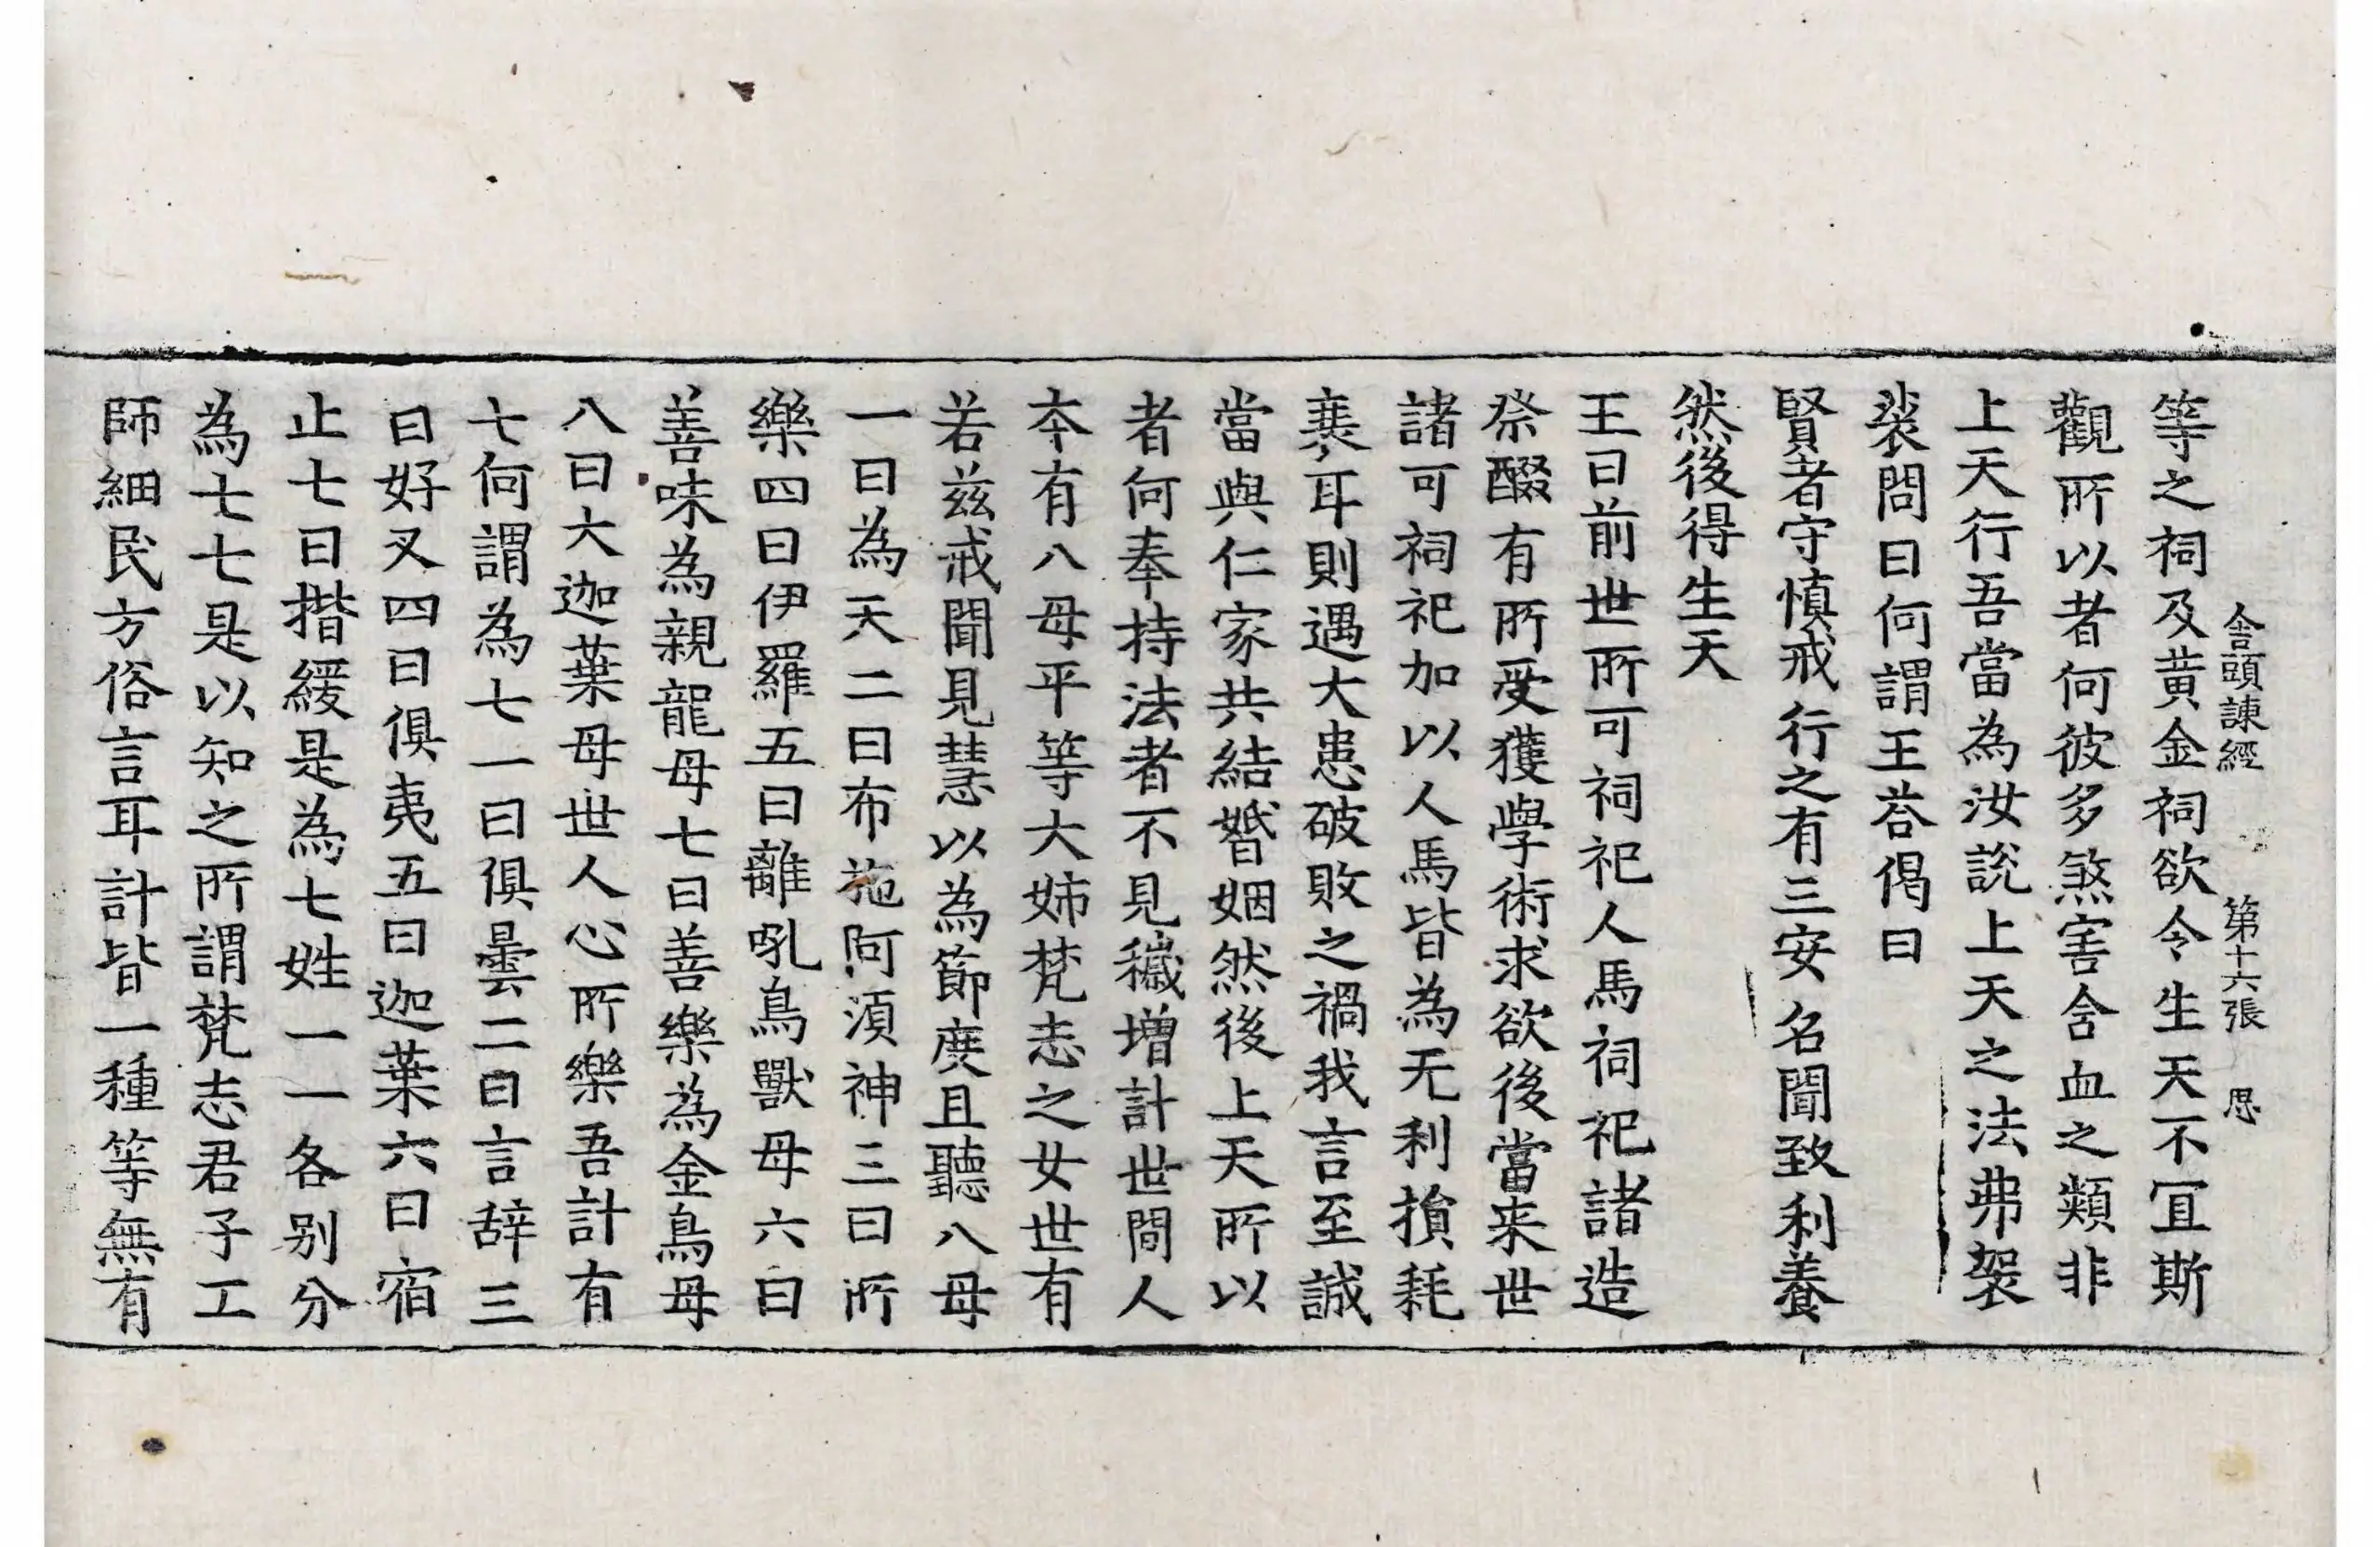 舎頭諫經　第十六張　思
等之祠及黄金祠欲令生天不冝斯
觀所以者何彼多煞害含血之類非
上天行吾當為汝説上天之法弗袈
裟問曰何謂王荅偈曰
賢者守慎戒行之有三安名聞致利養
然後得生天
王曰前世所可祠祀人馬祠祀諸造
祭醊有所受獲學術求欲後當来世
諸可祠祀加以人馬皆為无利損耗
裹耳則遇大患破敗之禍我言至誠
當與仁家共結婚姻然後上天所以
者何奉持法者不見穢増計世間人
夲有八母平等大姉梵志之女世有
若兹戒聞見慧以為節度且聽八母
一曰為天二曰布施阿湏神三曰所
樂四曰伊羅五曰離吼鳥獸母六曰
善味為親龍母七曰善樂為金鳥母
八曰大迦葉母世人心所樂吾計有
七何謂為七一曰俱曇二曰言辞三
曰好叉四曰俱夷五曰迦葉六曰宿
止七曰揩緩是為七姓一一各别分
為七七是以知之所謂梵志君子工
師細民方俗言耳計皆一種等無有